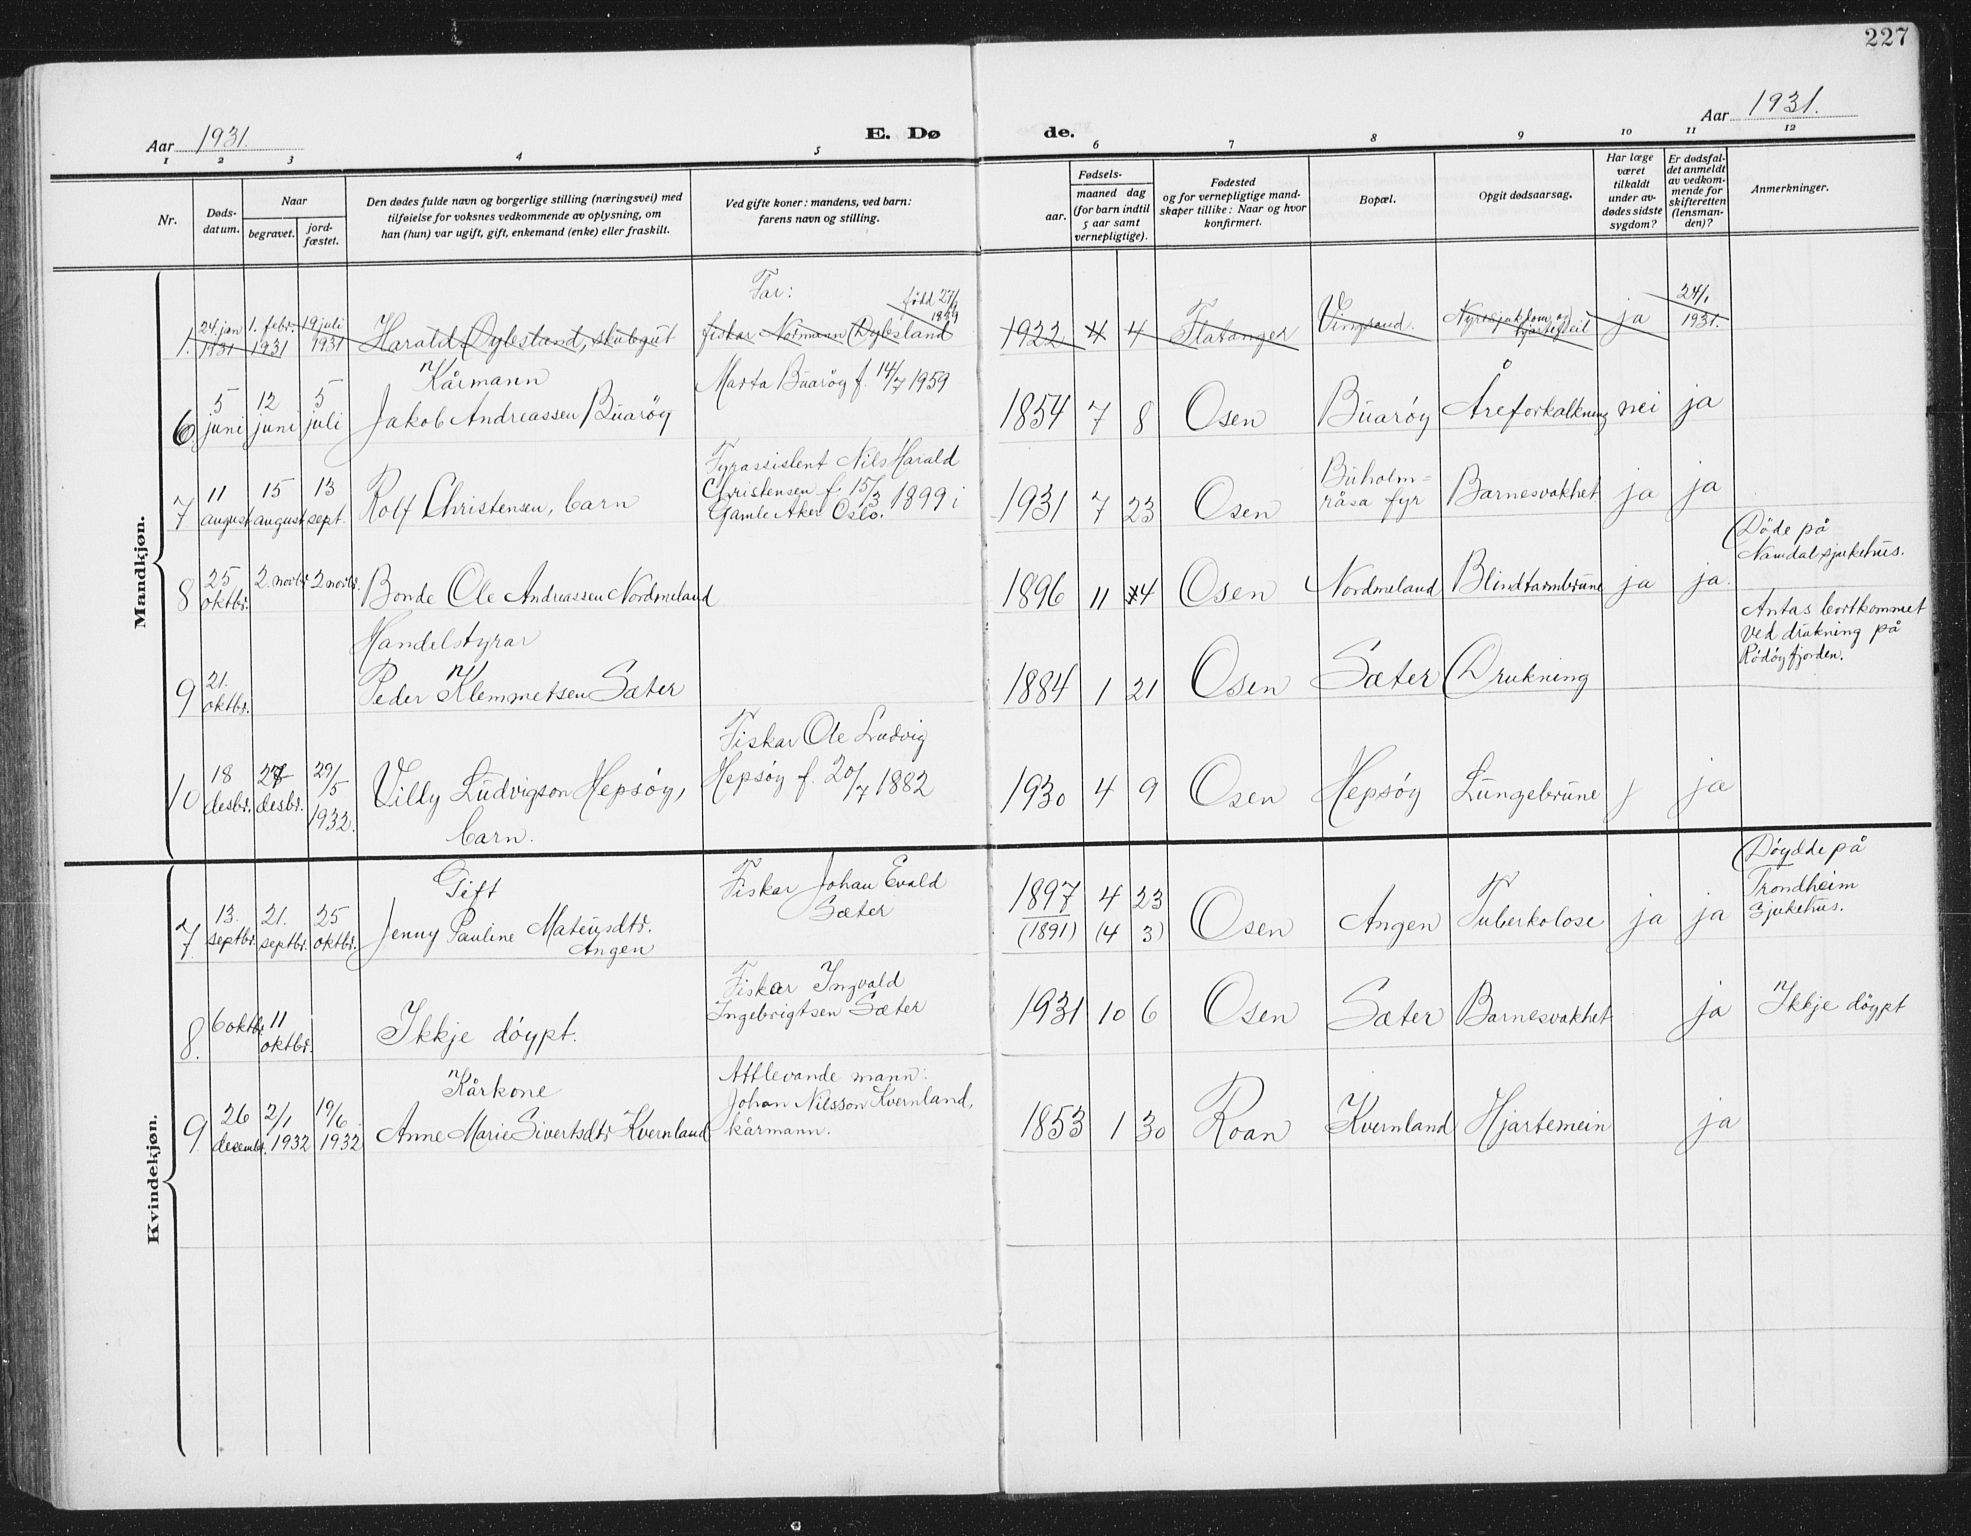 227
Aar 1931.
E. Dø
de.
Aar 1931.
1 2 3 4 5 6 7 8 9 10 11 12
Nr.
Døds-
datum.
Naar
begravet.
jord-
fæstet.
Den dødes fulde navn og borgerlige stilling (næringsvei) med
tilføielse for voksnes vedkommende av oplysning, om
han (hun) var ugift, gift, enkemand (enke) eller fraskilt.
Ved gifte koner: mandens, ved barn:
farens navn og stilling.
Fødsels-
aar.
maaned dag
(for barn indtil
5 aar samt
vernepligtige).
Fødested
og for vernepligtige mand-
skaper tillike: Naar og hvor
konfirmert.
Bopæl.
Opgit dødsaarsag.
Har læge
været
tilkaldt
under av-
dødes sidste
sygdom?
Er dødsfal-
det anmeldt
av vedkom-
mende for
skifteretten
(lensman-
den)?
Anmerkninger.
Mandkjøn.
Far:
född 27/1
1889
1. 24 jan 1931 1. febr. 1931 19 juli 1931 Harald Dylestand, skulegut fiskar Normann Dylesland 1922 4 4 Flatanger Vingsand. ja 24/1 1931.
Kårmann
Marta Buarøy f. 14/7 1959
6. 5 juni 12 juni 5 juli Jakob Andreassen Buarøy 1854 7 8 Osen Buarøy Åreforkalkning nei ja
Fyrassistent Nils Harald
Christensen f. 15/3 1899 i
Gamle Aker Oslo.
7 11 august 15 august 13 sept. Rolf Christensen, barn 1931 7 23 Osen Buholm=
råsa fyr Barnesvakhet ja ja
Døde på
Namdal sjukehus.
8 25 oktbr. 2. novbr 2 novbr. Bonde Ole Andreassen Nordmeland 1896 11 4 Osen Nordmeland Blindtarmbrune ja ja
Handelstyrar
Antas bortkommet
ved drukning på
Rödöyfjorden.
9 21. oktbr. Peder Klemmetsen Sæter 1884 1 21 Osen Sæter Drukning
Fiskar Ole Ludvig
Hepsøy f. 20/7 1882
10 18 desbr. 27 desbr. 29/5 1932. Villy Ludvigson Hepsøy,
barn.
1930 4 9 Osen Hepsøy Lungebrune j ja
Kvindekjøn.
Gift
Fiskar Johan Evald
Sæter
Døydde på
Trondheim
Sjukehus.
7. 13. septbr. 21. septbr. 25 oktbr. Jenny Pauline Mateusdtr.
Angen
1897 4 23 Osen Angen Tuberkolose ja ja
(1891) (4 3)
Fiskar Ingvald
Ingebrigtsen Sæter
8. 6 oktbr. 11 oktbr. Ikkje döypt. 1931 10 6 Osen Sæter Barnesvakhet ja Ikkje döypt
Kårkone
Attlevande mann:
Johan Nilsson Kvernland,
kårmann.
9. 26 desembr. 2/1 1932 19/6 1932 Anne Marie Sivertsdtr Kvernland 1853 1 30 Roan Kvernland Hjartemein ja